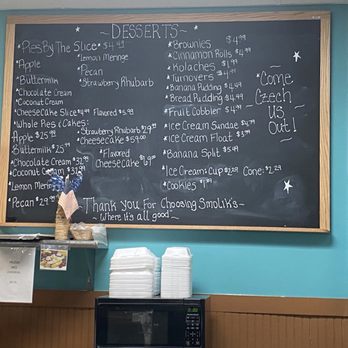 ~DESSERTS~
Pies By The Slice $4.49
*Apple
*Buttermilk
*Chocolate Cream
*Coconut Cream
*Lemon Meringe
*Pecan
*Strawberry Rhubarb
*Cheesecake Slice $4.99 Flavored $5.99
*Whole Pies & Cakes:
Apple $25.99
Buttermilk $25.99
Chocolate Cream $32.99
Coconut Cream
Lemon Mering
*Pecan $29.95
*Strawberry Rhubarb $29.99
*Cheesecake $59.00
*Flavored Cheesecake
*Brownies $4.99
*Cinnamon Rolls $4.99
*Kolaches $1.99
*Turnovers $4.99
*Banana Pudding $4.99
*Bread Pudding $4.99
*Fruit Cobbler $4.99
*Ice Cream Sundae $4.79
*Ice Cream Float $3.99
*Banana Split $5.49
*Ice Cream: Cup $2.29 Cone: $2.29
*Cookies $1.99
Come
Czech
us
Out!
Thank you For Choosing Smolik's~
~Where it's all good~